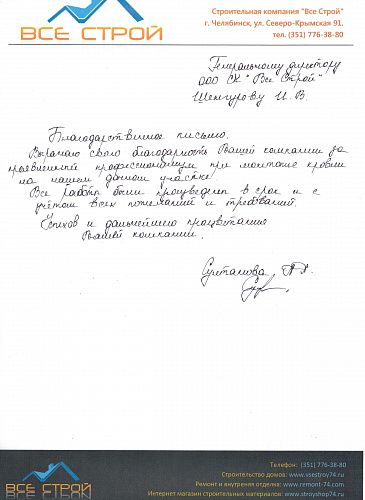 ВСЕ СТРОЙ
Строительная компания "Все Строй"
г. Челябинск, ул. Северо-Крымская 91.
тел. (351) 776-38-80
Генеральному директору
ООО СК "Все Строй"
Шенгурову И.В.
Благодарственное письмо.
Выражаю свою благодарность Вашей компании за
проявленный профессионализм при монтаже кровли
на нашем дачном участке.
Все работы были произведены в срок и с
учётом всех пожеланий и требований.
Успехов и дальнейшего процветания
Вашей компании.
Султанова
ВСЕ СТРОЙ
Телефон: (351) 776-38-80
Строительство домов: www.vsestroy74.ru
Ремонт и внутреняя отделка: www.remont-74.com
Интернет магазин строительных материалов: www.stroyshop74.ru